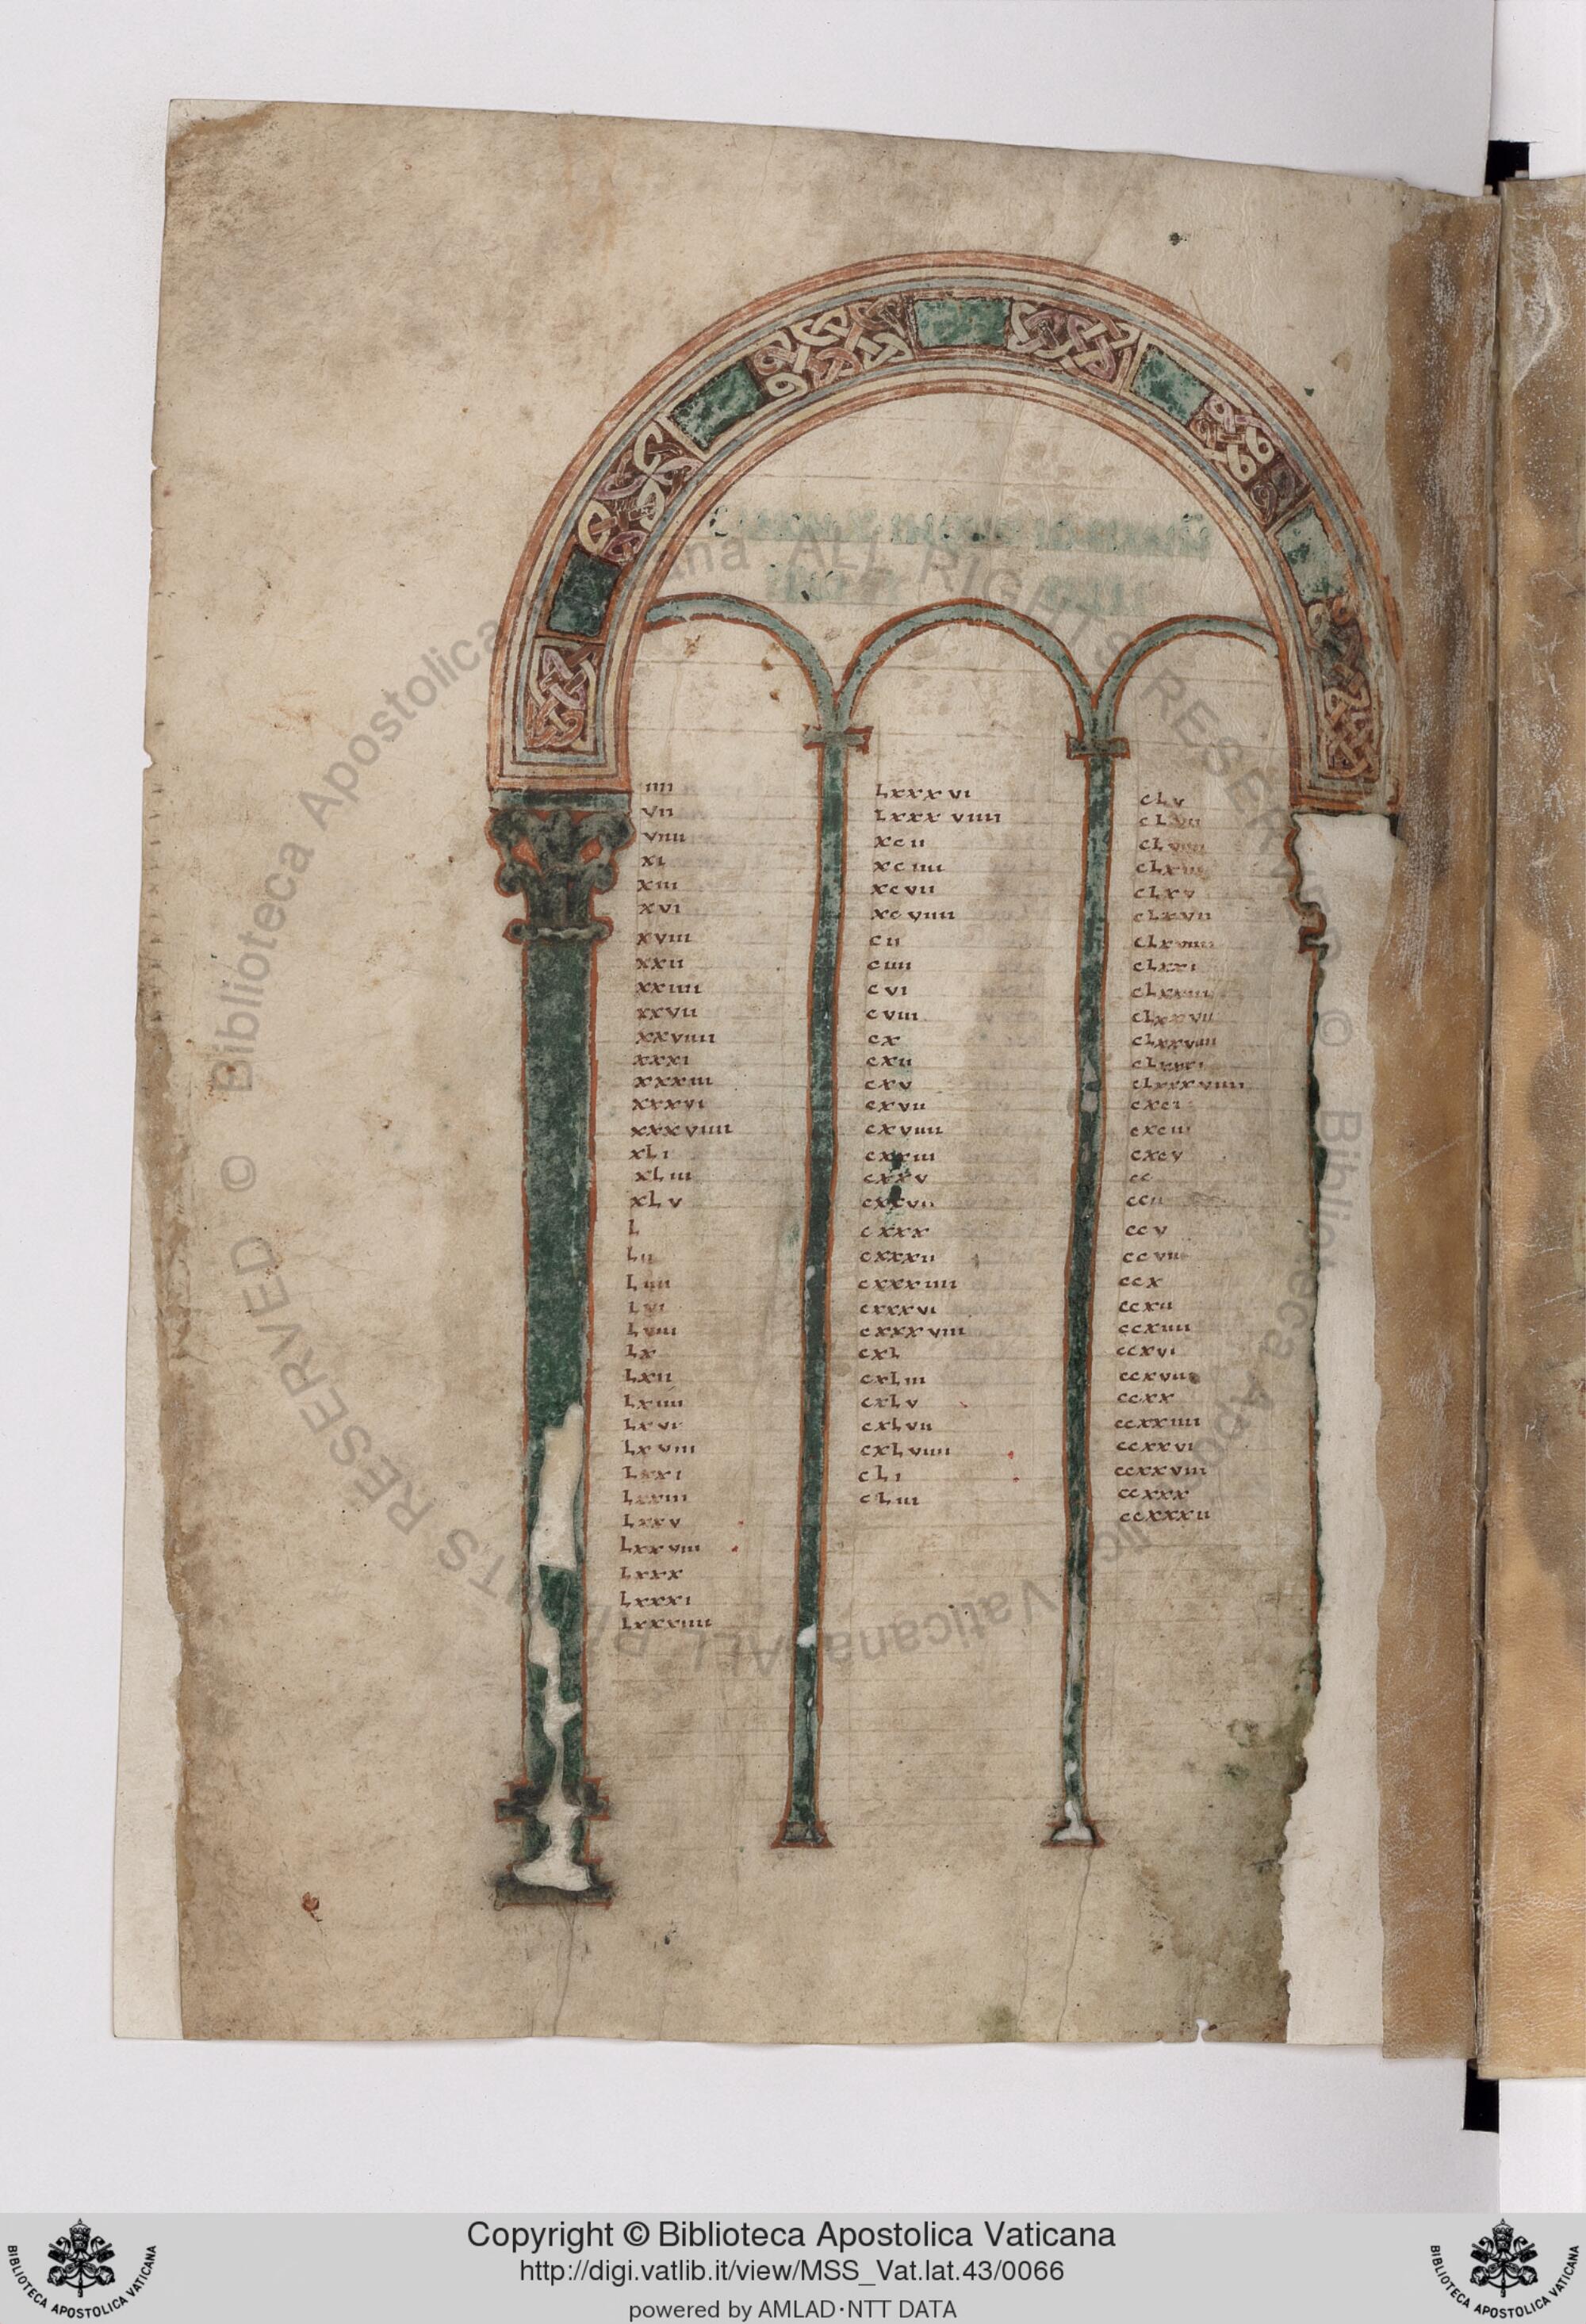 iiii
vii
viiii
xi
xiii
xvi
xviii
xxii
xxiiii
xxvii
xxviiii
xxxi
xxxiii
xxxvi
xxxviiii
xLi
xLiii
xLv
L
Lii
Liiii
Lvi
Lviii
Lx
Lxii
Lxiiii
Lxvi
Lxviii
Lxxi
Lxxiii
Lxxv
Lxxviii
Lxxx
Lxxxi
Lxxxiiii
Lxxxvi
Lxxxviiii
xcii
xciiii
xcvii
xcviiii
cii
ciiii
cvi
cviii
cx
cxii
cxv
cxvii
cxviiii
cxxiii
cxxv
cxxvii
cxxx
cxxxii
cxxxiiii
cxxxvi
cxxxviii
cxL
cxLiii
cxLv
cxLvii
cxLviiii
cLi
cLiii
cLv
cLvii
cLviiii
cLxiii
cLxv
cLxvii
cLxviiii
cLxxi
cLxxiii
cLxxvii
cLxxviiii
cLxxxi
cLxxxviiii
cxci
cxciii
cxcv
cc
ccii
ccv
ccvii
ccx
ccxii
ccxiiii
ccxvi
ccxviii
ccxx
ccxxiiii
ccxxvi
ccxxviii
ccxxx
ccxxxii
© Biblioteca Apostolica Vaticana ALL RIGHTS RESERVED © Biblioteca Apostolica Vaticana ALL RIGHTS RESERVED
Copyright © Biblioteca Apostolica Vaticana
http://digi.vatlib.it/view/MSS_Vat.lat.43/0066
powered by AMLAD·NTT DATA
BIBLIOTECA APOSTOLICA VATICANA
BIBLIOTECA APOSTOLICA VATICANA